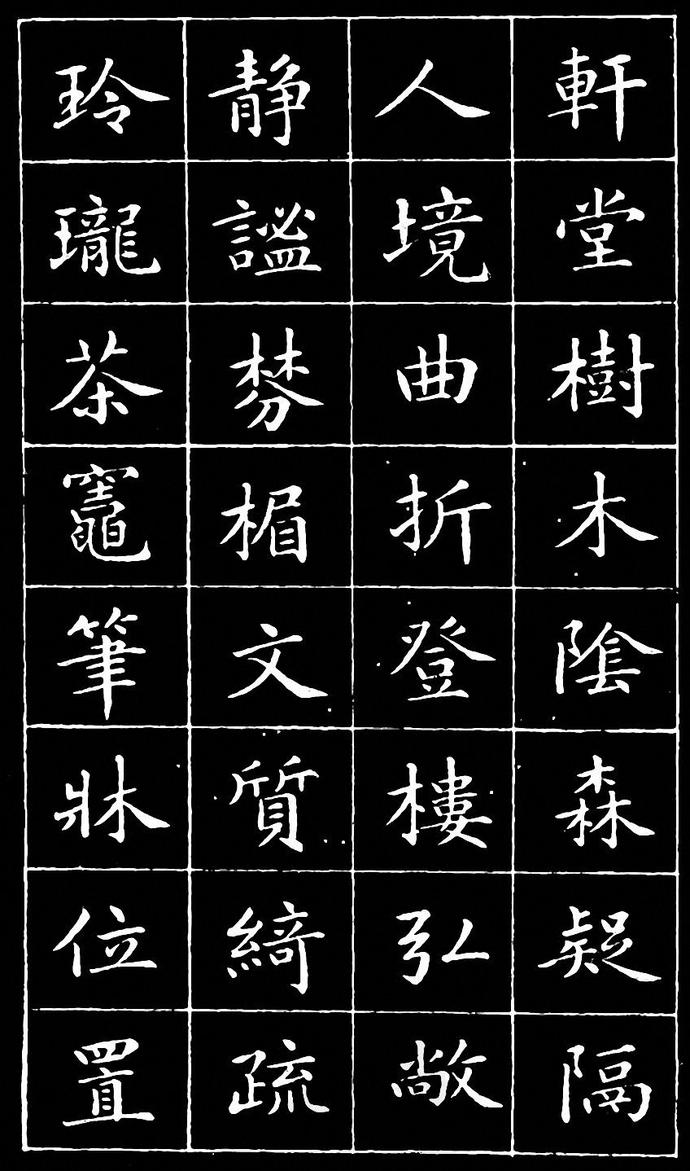 軒堂樹木陰森疑隔
人境曲折登樓弘敞
静謐棼楣文質綺疏
玲瓏茶竈筆牀位置